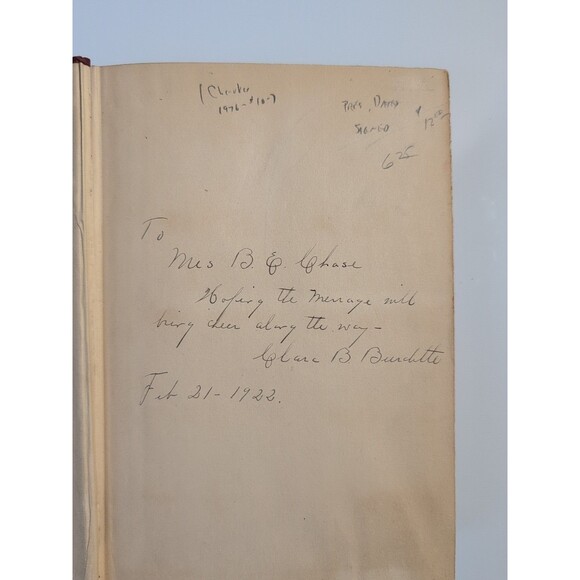 1976 - $10-
SIGNED
$12.00
6.25
To
Mrs B. E. Chase
Hoping the message will
bring cheer along the way -
Clara B Burdette
Feb 21 - 1922.